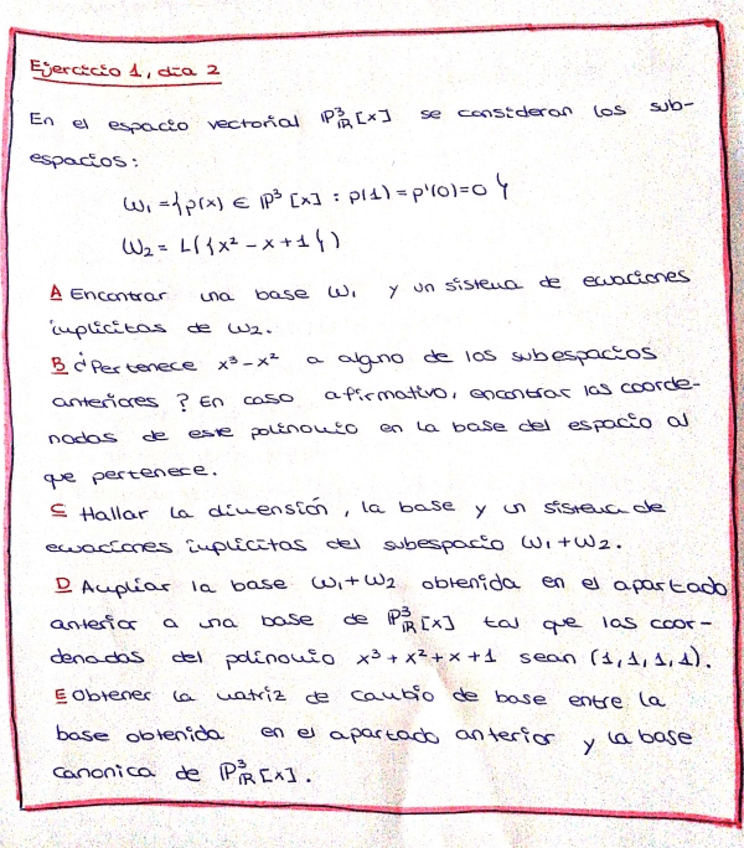 Ejercicio 1, día 2
En el espacio vectorial ℙ³_ℝ[x] se consideran los sub-
espacios:
W₁ = {p(x) ∈ ℙ³[x] : p(1) = p'(0)=0}
W₂ = L({x² - x + 1})
A Encontrar una base W₁ y un sistema de ecuaciones
implícitas de W₂.
B ¿Pertenece x³-x² a alguno de los subespacios
anteriores? En caso afirmativo, encontrar las coorde-
nadas de este polinomio en la base del espacio al
que pertenece.
C Hallar la dimensión, la base y un sistema de
ecuaciones implícitas del subespacio W₁+W₂.
D Ampliar la base W₁+W₂ obtenida en el apartado
anterior a una base de ℙ³_ℝ[x] tal que las coor-
denadas del polinomio x³+x²+x+1 sean (1,1,1,1).
E Obtener la matriz de cambio de base entre la
base obtenida en el apartado anterior y la base
canonica de ℙ³_ℝ[x].